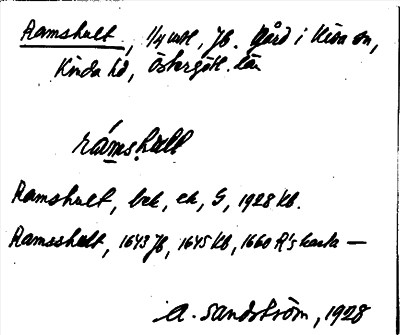 Ramshult, 1/4 mtl, Jb. Gård i Kisa sn,
Kinda hd, Östergötl. län
rámshult
Ramshult, bek, ek, G, 1928 Kb.
Ramsshult, 1643 Jb, 1645 Kb, 1660 R's karta —
A. Sandström, 1928